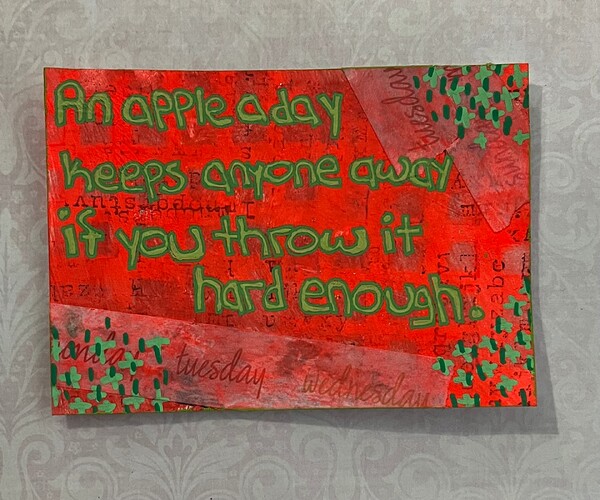 An apple a day
keeps anyone away
if you throw it
hard enough.
tuesday
sunday
tuesday
wednesday